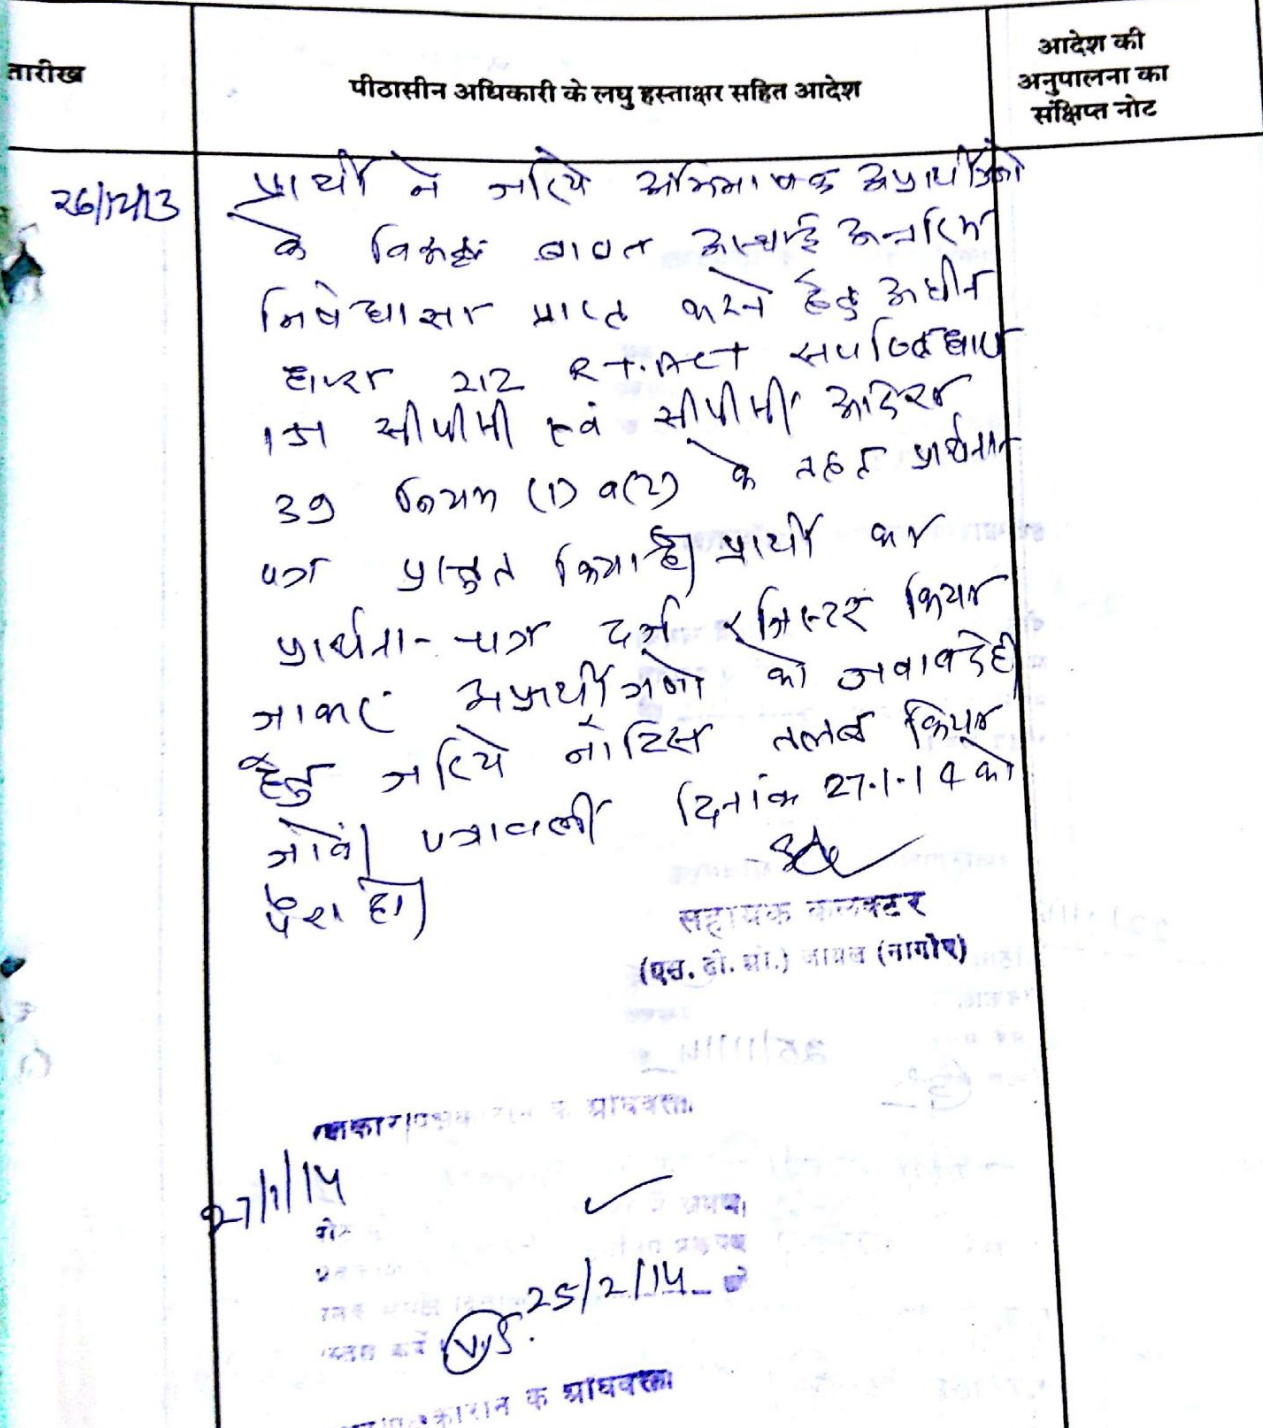 तारीख
पीठासीन अधिकारी के लघु हस्ताक्षर सहित आदेश
आदेश की
अनुपालना का
संक्षिप्त नोट
26/12/13
प्रार्थी ने जरिये अभिभाषक अप्रार्थीगणो
के विरूद्ध बाबत अस्थाई अन्तरिम
निषेधाज्ञा प्राप्त करने हेतु अधीन
धारा 212 R.T.Act सपठित धारा
151 सीपीसी एवं सीपीसी आर्डर
39 नियम (1) व (2) के तहत प्रार्थना
पत्र प्रस्तुत किया है। प्रार्थी का
प्रार्थना-पत्र दर्ज रजिस्टर किया
जाकर अप्रार्थीगणो को जवाबदेही
हेतु जरिये नोटिस तलब किया
जावे। पत्रावली दिनांक 27.1.14 को
पेश हो।
सहायक कलक्टर
(एस. डी. ओ.) जायल (नागौर)
27/1/14
25/2/14 को